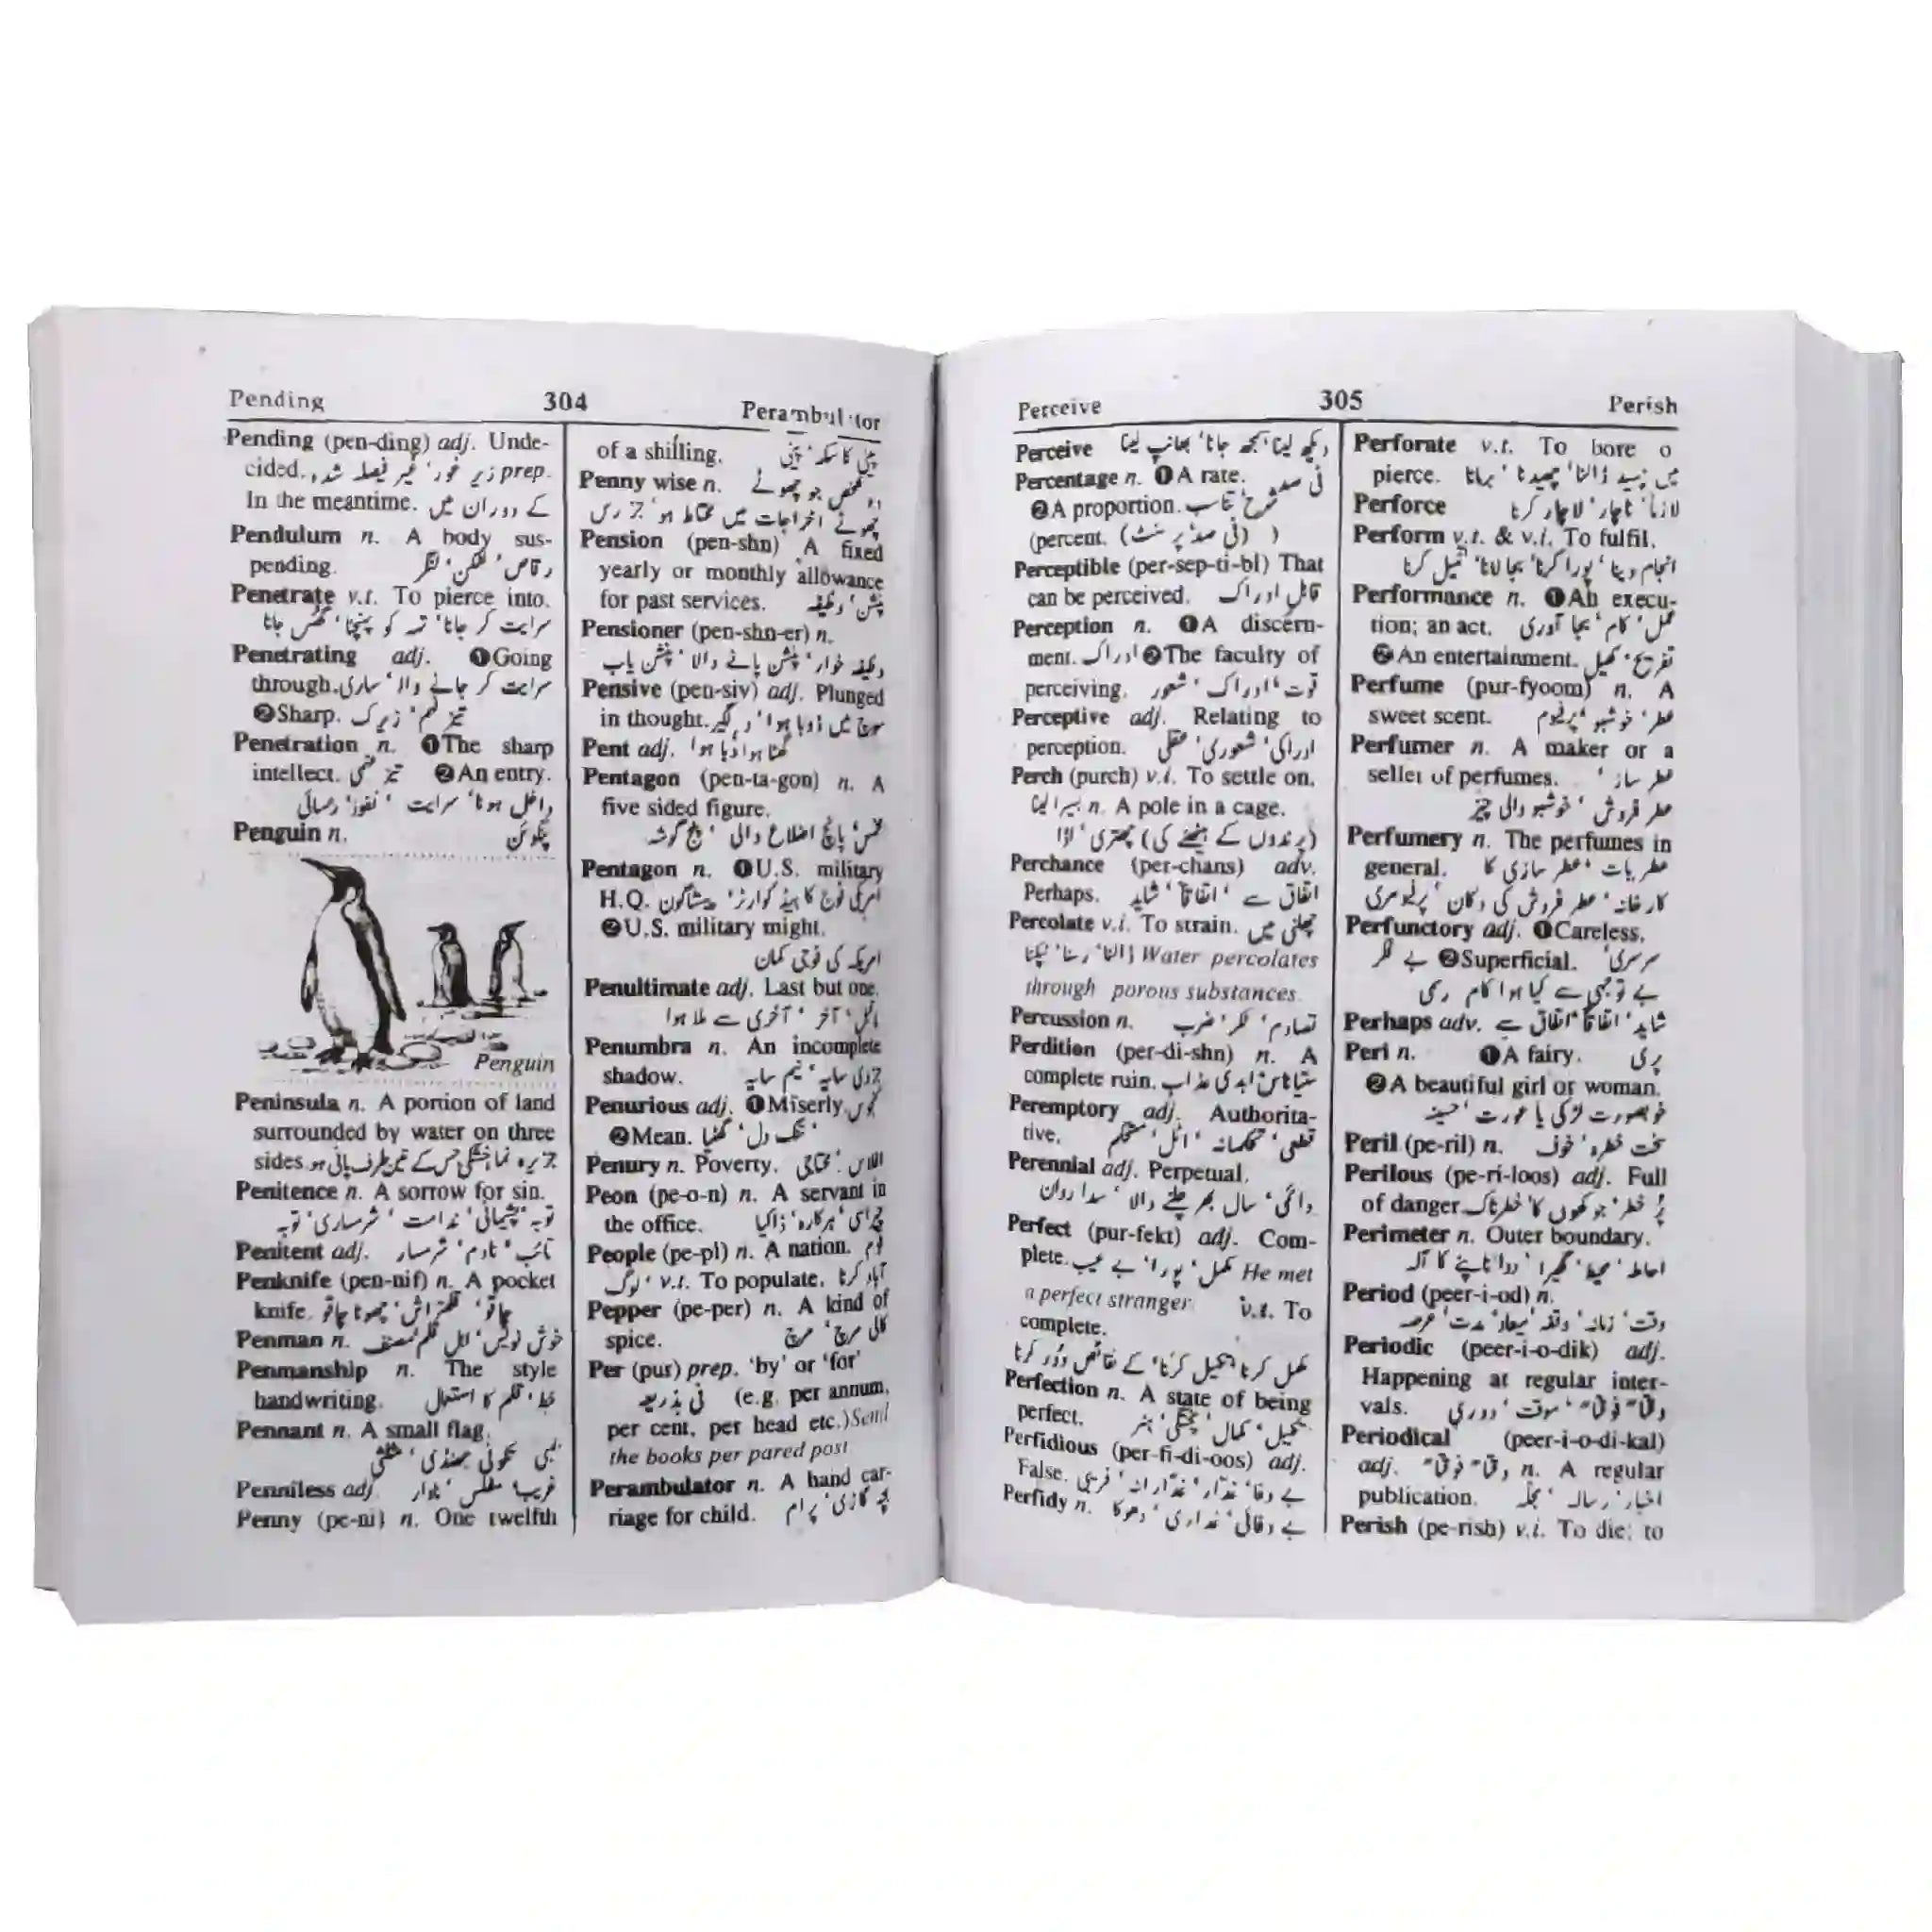 Pending 304
Pending (pen-ding) adj. Unde-
cided. زیر غور، غیر فیصلہ شدہ prep.
In the meantime. کے دوران میں
Pendulum n. A body sus-
pending. رقاص، لٹکن، لنگر
Penetrate v.t. To pierce into.
سرایت کر جانا، تہہ کو پہنچنا، گھس جانا
Penetrating adj. ❶Going
through. سرایت کر جانے والا، ساری
❷Sharp. تیز فہم، زیرک
Penetration n. ❶The sharp
intellect. تیز فہمی ❷An entry.
داخل ہونا، سرایت، نفوذ، رسائی
Penguin n. پنگوئن
Penguin
Peninsula n. A portion of land
surrounded by water on three
sides. جزیرہ نما، خشکی جس کے تین طرف پانی ہو
Penitence n. A sorrow for sin.
توبہ، پشیمانی، ندامت، شرمساری، توبہ
Penitent adj. تائب، نادم، شرمسار
Penknife (pen-nif) n. A pocket
knife. چاقو، قلمتراش، چھوٹا چاقو
Penman n. خوش نویس، اہل قلم، مصنف
Penmanship n. The style
handwriting. خط، قلم کا استعمال
Pennant n. A small flag.
لمبی تکونی جھنڈی، مثلثی
Penniless adj. غریب، مفلس، نادار
Penny (pe-ni) n. One twelfth
of a shilling. پینی کا سکہ، پینی
Penny wise n. وہ شخص جو چھوٹے
چھوٹے اخراجات میں محتاط ہو، جز رس
Pension (pen-shn) A fixed
yearly or monthly allowance
for past services. پنشن، وظیفہ
Pensioner (pen-shn-er) n.
وظیفہ خوار، پنشن پانے والا، پنشن یاب
Pensive (pen-siv) adj. Plunged
in thought. سوچ میں ڈوبا ہوا، دلگیر
Pent adj. گھٹا ہوا دبا ہوا
Pentagon (pen-ta-gon) n. A
five sided figure.
مخمس، پانچ اضلاع والی، پنج گوشہ
Pentagon n. ❶U.S. military
H.Q. امریکی فوج کا ہیڈ کوارٹر، پینٹاگون
❷U.S. military might.
امریکہ کی فوجی کمان
Penultimate adj. Last but one.
ماقبل آخر، آخری سے ملا ہوا
Penumbra n. An incomplete
shadow. جزوی سایہ، نیم سایہ
Penurious adj. ❶Miserly. کنجوس
❷Mean. تنگ دل، گھٹیا
Penury n. Poverty. افلاس، محتاجی
Peon (pe-o-n) n. A servant in
the office. چپڑاسی، ہرکارہ، ڈاکیا
People (pe-pl) n. A nation. قوم
لوگ، v.t. To populate. آباد کرنا
Pepper (pe-per) n. A kind of
spice. کالی مرچ، مرچ
Per (pur) prep. 'by' or 'for'
فی بذریعہ (e.g. per annum,
per cent, per head etc.) Send
the books per pared post.
Perambulator n. A hand car-
riage for child. بچہ گاڑی، پرام
Perceive 305 Perish
Perceive دیکھ لینا، سمجھ جانا، بھانپ لینا
Percentage n. ❶A rate. فی صد
❷A proportion. شرح تناسب
(percent. (فی صد، پر سنٹ) )
Perceptible (per-sep-ti-bl) That
can be perceived. قابل ادراک
Perception n. ❶A discern-
ment. ادراک ❷The faculty of
perceiving. قوت ادراک، شعور
Perceptive adj. Relating to
perception. ادراکی، شعوری، عقلی
Perch (purch) v.i. To settle on.
بسیرا لینا n. A pole in a cage.
(پرندوں کے بیٹھنے کی) چھتری، اڈا
Perchance (per-chans) adv.
Perhaps. اتفاق سے، اتفاقاً، شاید
Percolate v.i. To strain. چھلنی میں
ڈالنا، رسنا، ٹپکنا Water percolates
through porous substances.
Percussion n. تصادم، ٹکر، ضرب
Perdition (per-di-shn) n. A
complete ruin. ستیاناس، ابدی عذاب
Peremptory adj. Authorita-
tive. قطعی، تحکمانہ، اٹل، مستحکم
Perennial adj. Perpetual.
دائمی، سال بھر چلنے والا، سدا رواں
Perfect (pur-fekt) adj. Com-
plete. مکمل، پورا، بے عیب He met
a perfect stranger. v.t. To
complete.
مکمل کرنا، تکمیل کرنا، کے نقائص دور کرنا
Perfection n. A state of being
perfect. تکمیل، کمال، پختگی، ہنر
Perfidious (per-fi-di-oos) adj.
False. بے وفا، غدار، غدارانہ، فریبی
Perfidy n. بے وفائی، غداری، دھوکا
Perforate v.t. To bore o
pierce. میں چھید ڈالنا، چھیدنا، برمانا
Perforce لازماً، ناچار، لاچار کرنا
Perform v.t. & v.i. To fulfil.
انجام دینا، پورا کرنا، بجا لانا، تعمیل کرنا
Performance n. ❶An execu-
tion; an act. عمل، کام، بجا آوری
❷An entertainment. تفریح، کھیل
Perfume (pur-fyoom) n. A
sweet scent. عطر، خوشبو، پرفیوم
Perfumer n. A maker or a
seller of perfumes. عطر ساز،
عطر فروش، خوشبو والی چیز
Perfumery n. The perfumes in
general. عطریات، عطر سازی کا
کارخانہ، عطر فروش کی دکان، پرفیومری
Perfunctory adj. ❶Careless.
بے فکر ❷Superficial. سرسری،
بے توجہی سے کیا ہوا کام، رسمی
Perhaps adv. شاید، اتفاقاً، اتفاق سے
Peri n. ❶A fairy. پری
❷A beautiful girl or woman.
خوبصورت لڑکی یا عورت، حسینہ
Peril (pe-ril) n. سخت خطرہ، خوف
Perilous (pe-ri-loos) adj. Full
of danger. پُر خطر، جوکھوں کا، خطرناک
Perimeter n. Outer boundary.
احاطہ، محیط، گھیرا،
Period (peer-i-od) n.
وقت، زمانہ، وقفہ، میعاد، مدت، عرصہ
Periodic (peer-i-o-dik) adj.
Happening at regular inter-
vals. وقتاً فوقتاً، موقت، دوری
Periodical (peer-i-o-di-kal)
adj. وقتاً فوقتاً n. A regular
publication. اخبار، رسالہ، مجلہ
Perish (pe-rish) v.i. To die; to